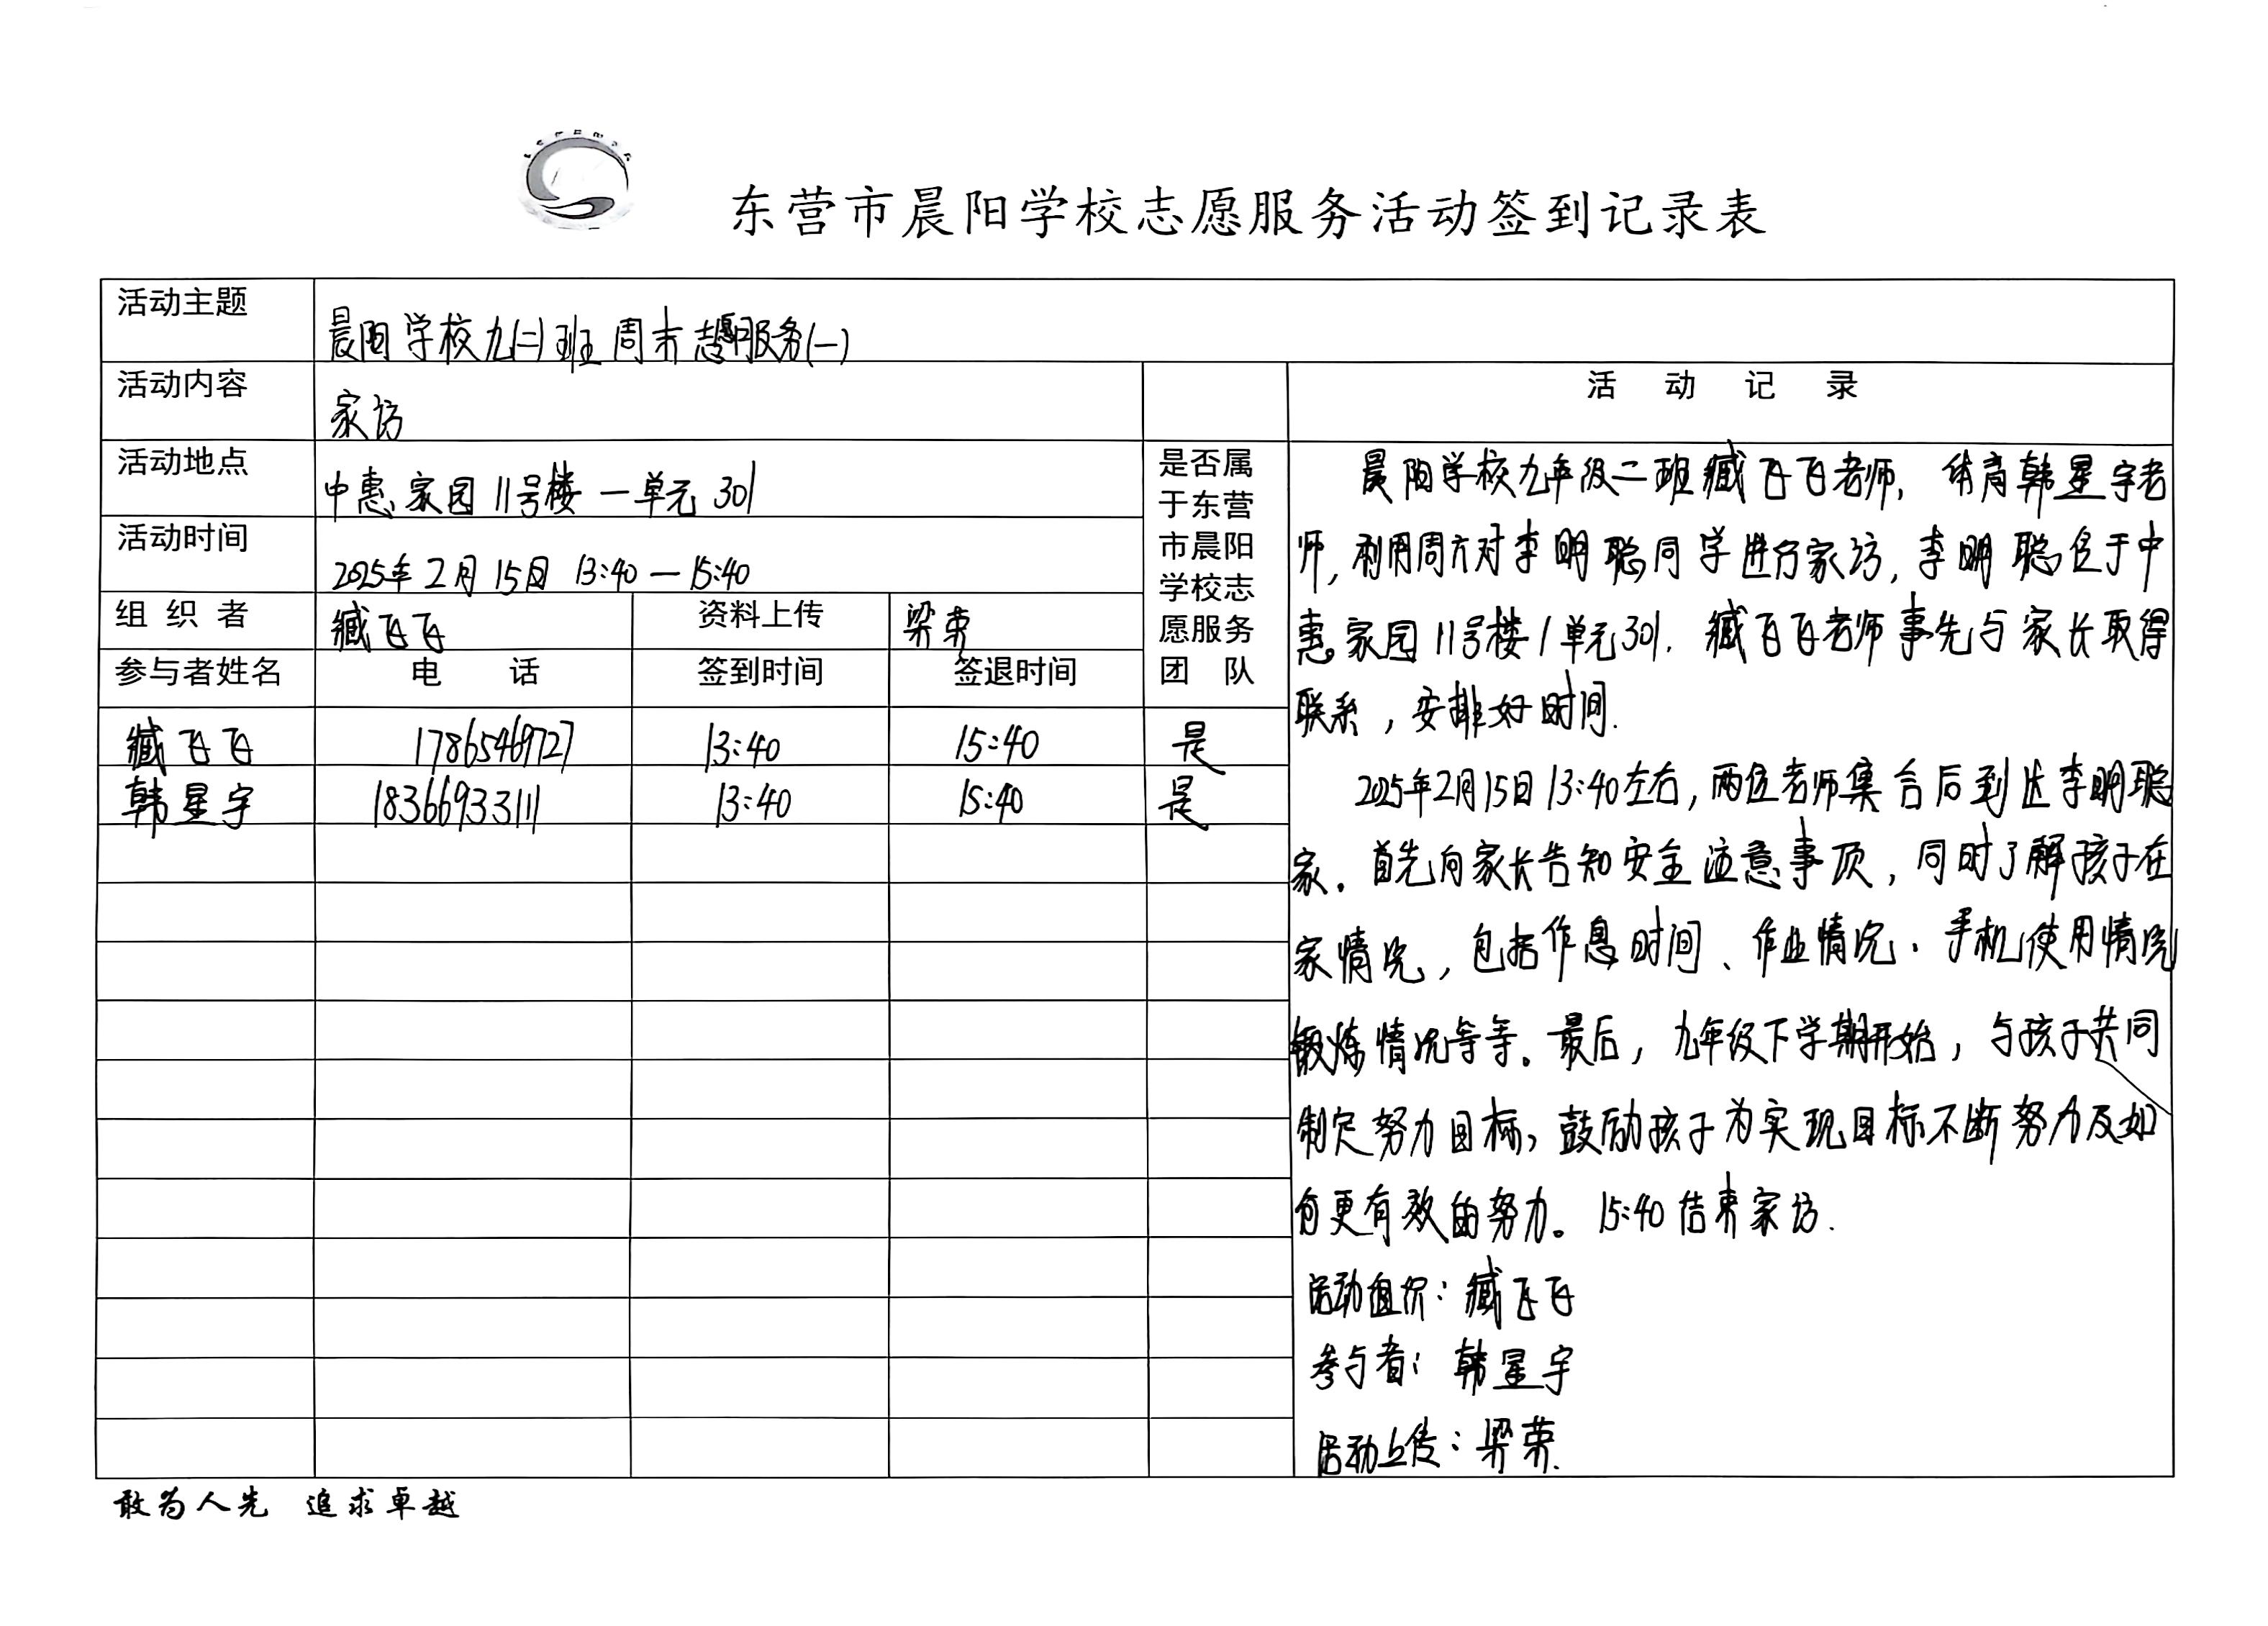 东营市晨阳学校志愿服务活动签到记录表
活动主题 晨阳学校九(二)班周末志愿服务(一)
活动内容 家访
活动地点 中惠家园11号楼一单元301
活动时间 2025年2月15日 13:40—15:40
组织者 臧飞飞 资料上传 梁荣
参与者姓名 电话 签到时间 签退时间
是否属
于东营
市晨阳
学校志
愿服务
团队
臧飞飞 17865469727 13:40 15:40 是
韩星宇 18366933111 13:40 15:40 是
活动记录
晨阳学校九年级二班臧飞飞老师,体育韩星宇老
师,利用周六对李明聪同学进行家访,李明聪位于中
惠家园11号楼1单元301.臧飞飞老师事先与家长取得
联系,安排好时间.
2025年2月15日13:40左右,两位老师集合后到达李明聪
家.首先向家长告知安全注意事项,同时了解孩子在
家情况,包括作息时间、作业情况、手机使用情况
锻炼情况等等.最后,九年级下学期开始,与孩子共同
制定努力目标,鼓励孩子为实现目标不断努力及如
何更有效的努力。15:40结束家访.
活动组织:臧飞飞
参与者:韩星宇
活动上传:梁荣.
敢为人先 追求卓越